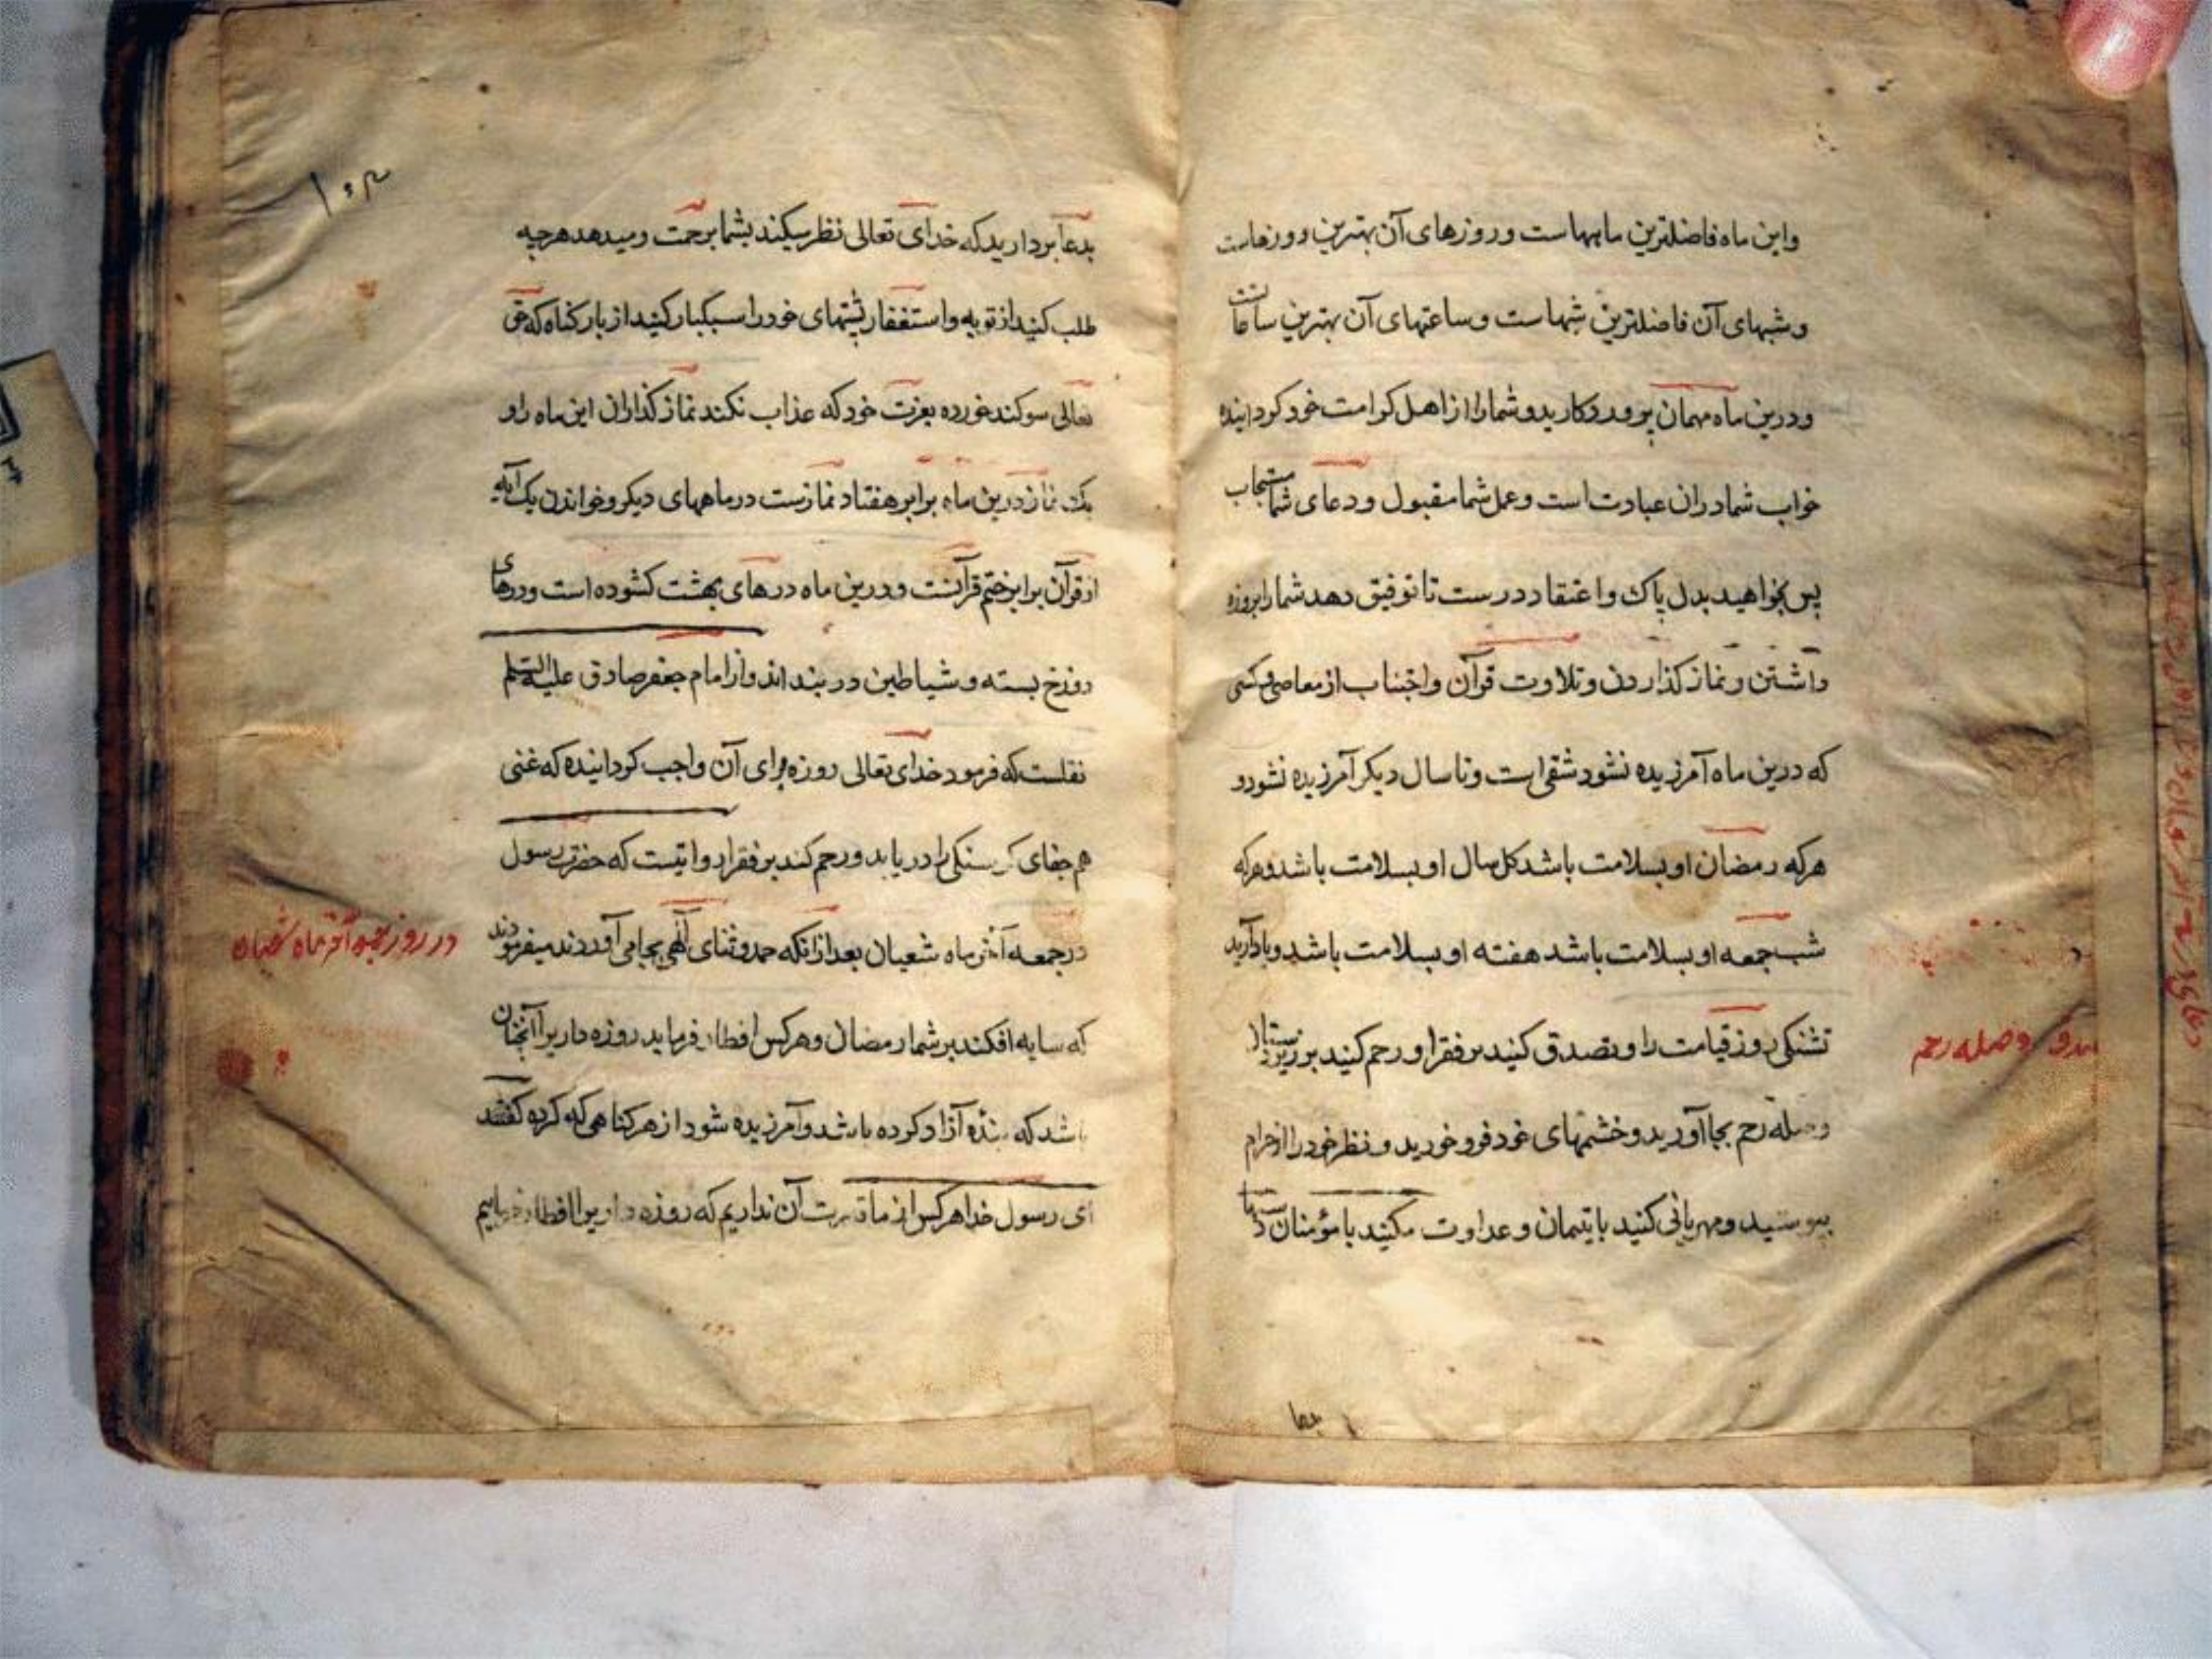 واین ماه فاضلترین ماههاست وروزهای آن بهترین روزهاست
وشبهای آن فاضلترین شبهاست وساعتهای آن بهترین ساعات
ودرین ماه مهمان پروردکارید وشمارا از اهل کرامت خود کردانیده
خواب شما دران عبادت است وعمل شما مقبول ودعای شما مستجاب
پس بخواهید بدل پاک واعتقاد درست تا توفیق دهد شمارا بروزه
داشتن ونماز کذاردن وتلاوت قرآن واجتناب از معاصی وکسی
که درین ماه آمرزیده نشود شقی است وتا سال دیکر آمرزیده نشود و
هرکه رمضان او بسلامت باشد کل سال او بسلامت باشد وهرکه
شب جمعه او بسلامت باشد هفته او بسلامت باشد ویاد آرید
تشنکی روز قیامت را وتصدق کنید بر فقرا ورحم کنید بر زیردستان
وصله رحم بجا آورید وخشمهای خود فرو خورید ونظر خود را از حرام
بپوشید ومهربانی کنید با یتیمان وعداوت مکنید با مؤمنان
وصله رحم
۱۰۳
بدعا بردارید که خدای تعالی نظر میکند بشما برحمت ومیدهد هرچه
طلب کنید از توبه واستغفار پشتهای خود را سبکبار کنید از بار کناه که حق
تعالی سوکند خورده بعزت خود که عذاب نکند نماز کذاران این ماه را و
یک نماز درین ماه برابر هفتاد نمازست در ماههای دیکر وخواندن یک آیه
از قرآن برابر ختم قرآنست ودرین ماه درهای بهشت کشوده است ودرهای
دوزخ بسته وشیاطین در بند اند واز امام جعفر صادق علیه السلم
نقلست که فرمود خدای تعالی روزه برای آن واجب کردانیده که غنی
هم جفای کرسنکی را دریابد ورحم کند بر فقرا روایتست که حضرت رسول
در جمعه آخر ماه شعبان بعد ازانکه حمد وثنای آلهی بجا می آوردند میفرمودند
که سایه افکند بر شما رمضان وهرکس افطار فرماید روزه داریرا آنچنان
باشد که بنده آزاد کرده باشد وآمرزیده شود از هر کناهی که کرده کفتند
ای رسول خدا هرکس از ما قدرت آن نداریم که روزه داریرا افطار فرماییم
در روز جمعه آخر ماه شعبان